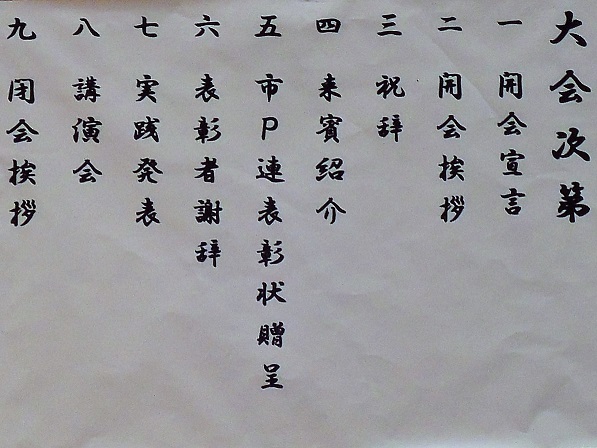 大会次第
一 開会宣言
二 開会挨拶
三 祝辞
四 来賓紹介
五 市P連表彰状贈呈
六 表彰者謝辞
七 実践発表
八 講演会
九 閉会挨拶